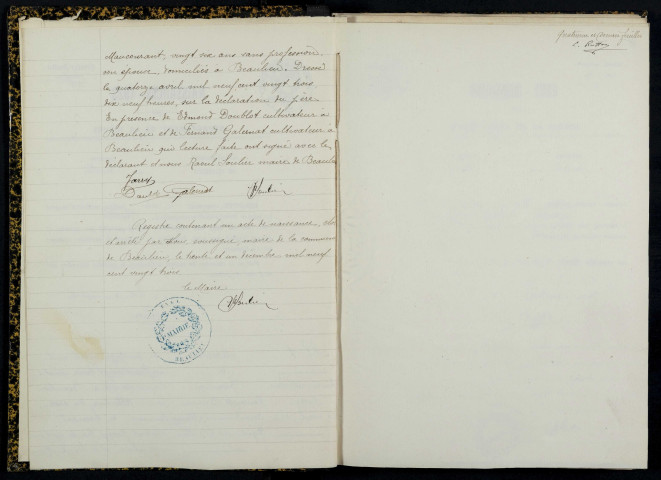 Maucourant, vingt six ans sans profession
son épouse, domiciliés à Beaulieu. Dressé
le quatorze avril mil neuf cent vingt trois
dix neuf heures, sur la déclaration du père
En présence de Edmond Doublot cultivateur à
Beaulieu et de Fernand Galernat cultivateur à
Beaulieu qui lecture faite ont signé avec le
déclarant et nous Raoul Soulier maire de Beaulieu
Registre contenant un acte de naissance, clos
et arrêté par nous soussigné, maire de la commune
de Beaulieu, le trente et un décembre mil neuf
cent vingt trois
Le Maire
MAIRIE
dernier feuillet